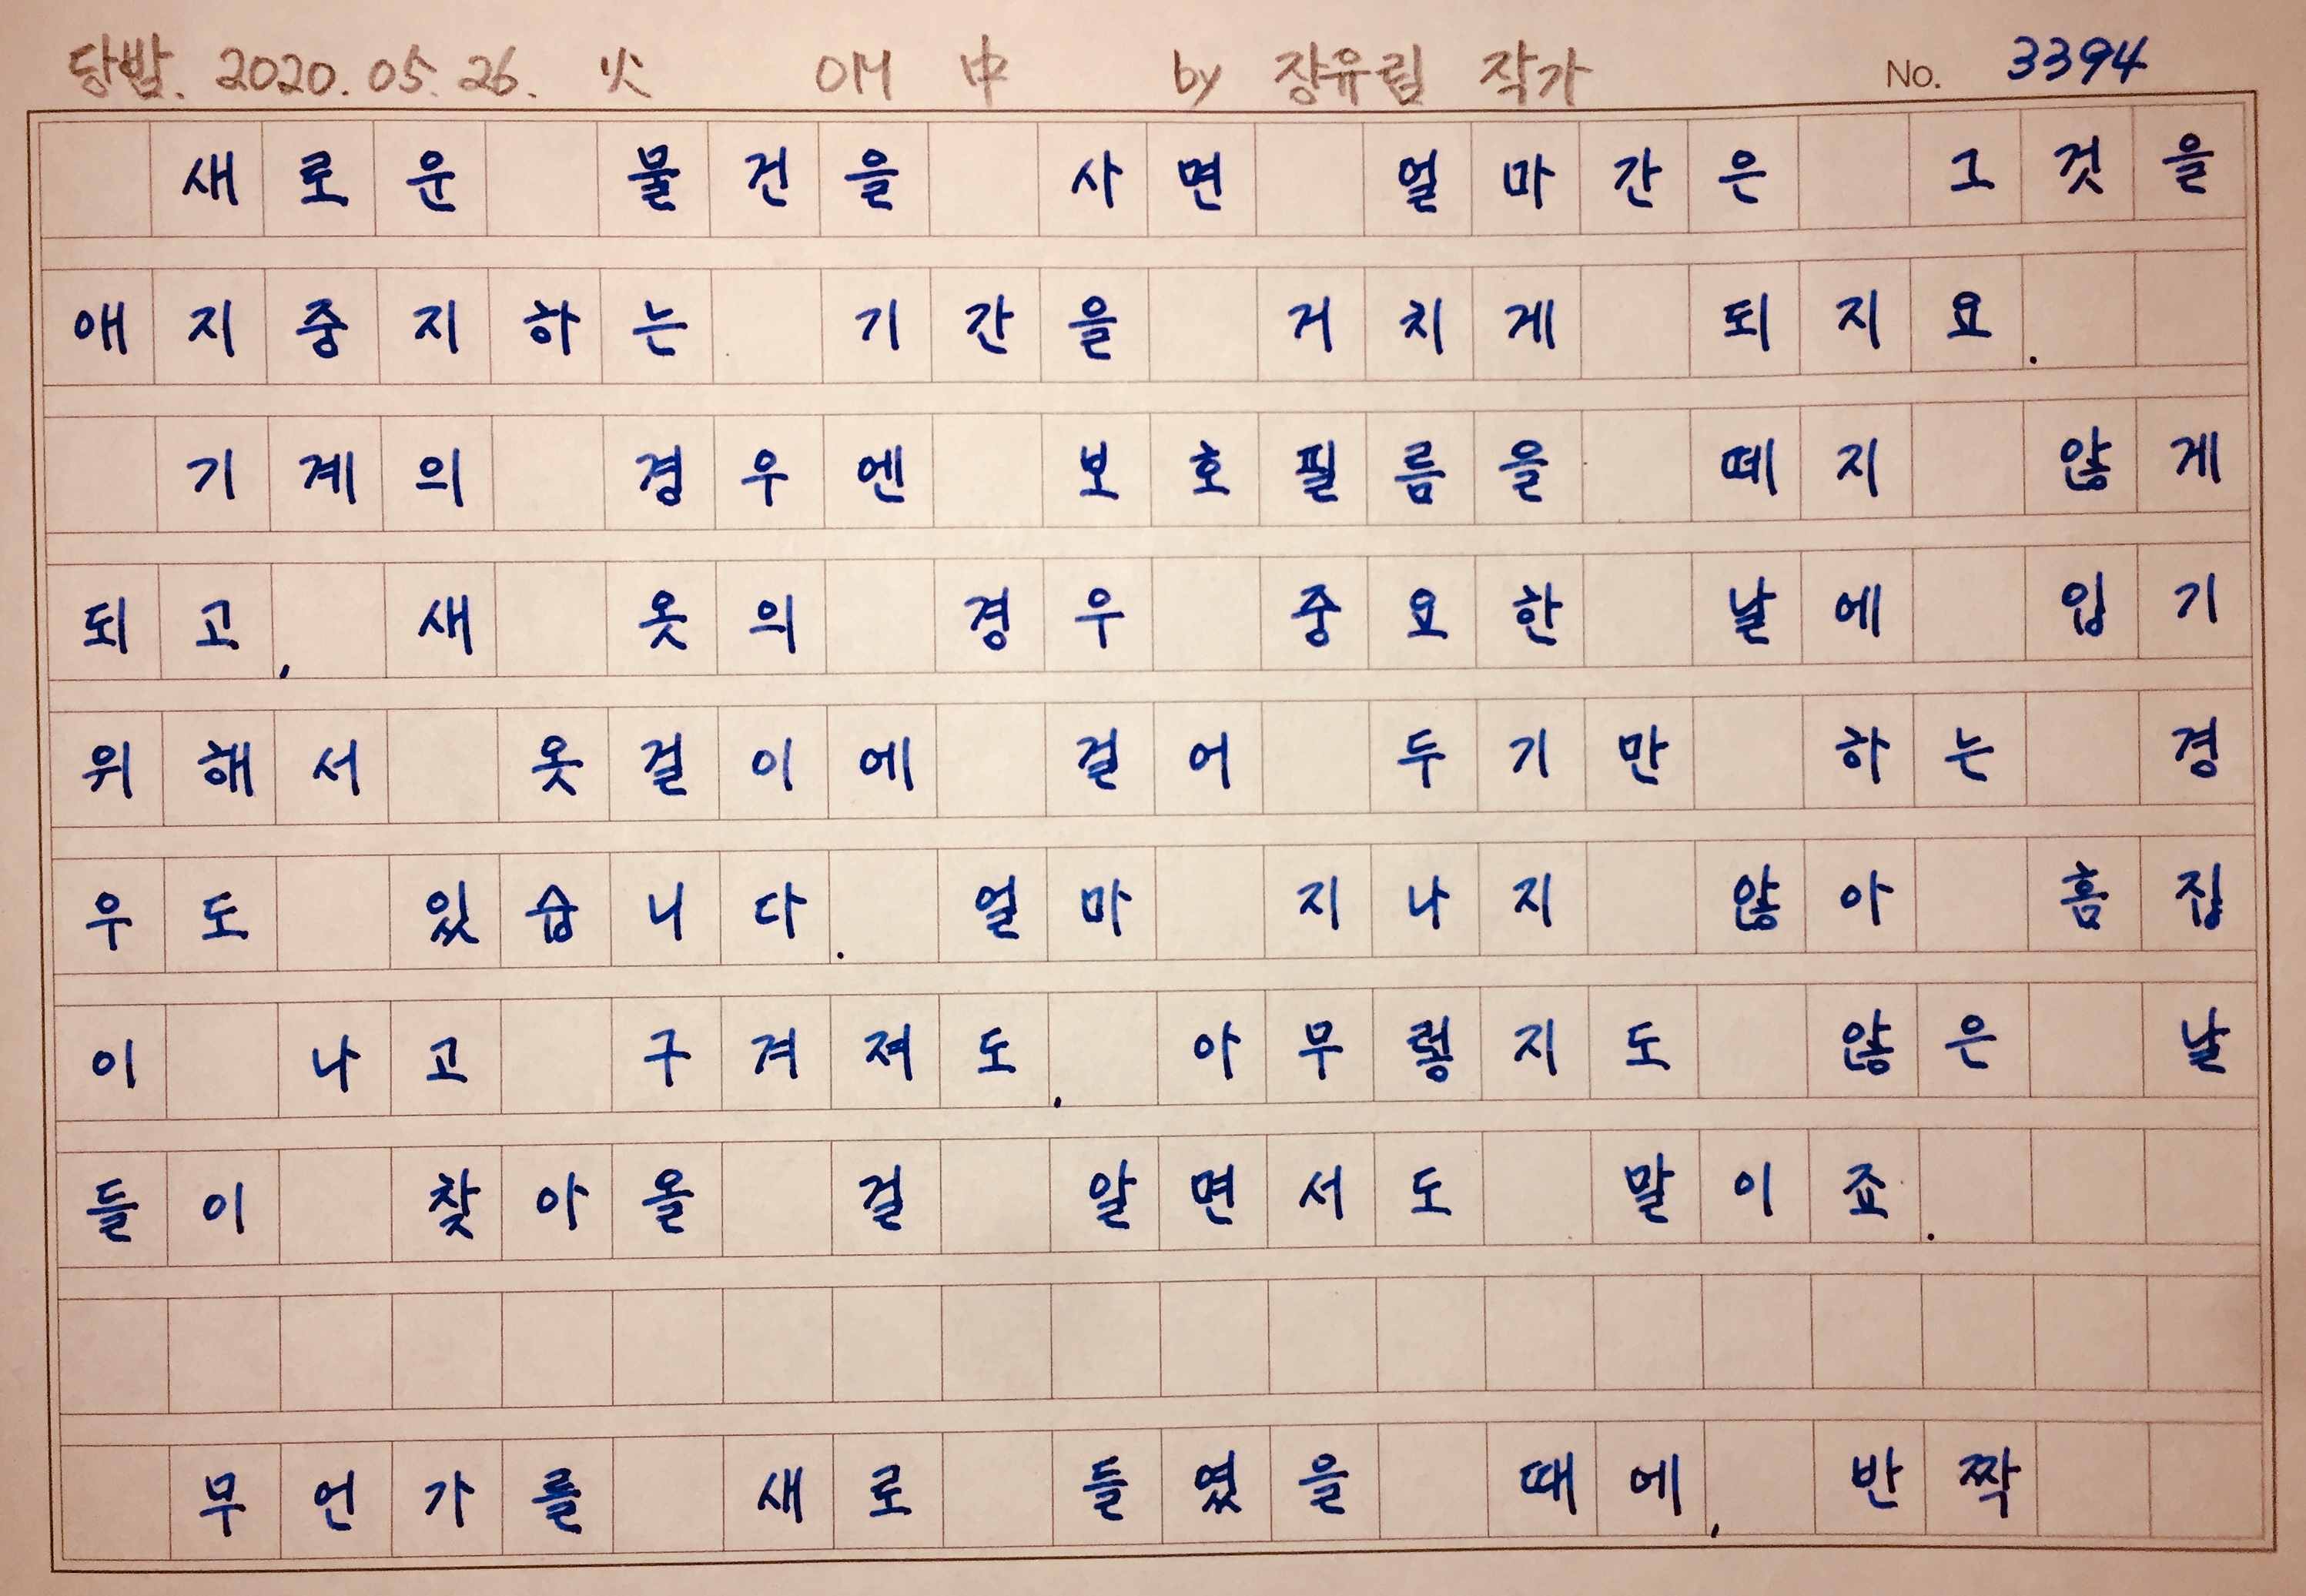 당밤. 2020. 05. 26. 火 애 中 by 장유림 작가 No. 3394
새로운 물건을 사면 얼마간은 그것을
애지중지하는 기간을 거치게 되지요.
기계의 경우엔 보호필름을 떼지 않게
되고, 새 옷의 경우 중요한 날에 입기
위해서 옷걸이에 걸어 두기만 하는 경
우도 있습니다. 얼마 지나지 않아 흠집
이 나고 구겨져도, 아무렇지도 않은 날
들이 찾아올 걸 알면서도 말이죠.
무언가를 새로 들였을 때에, 반짝